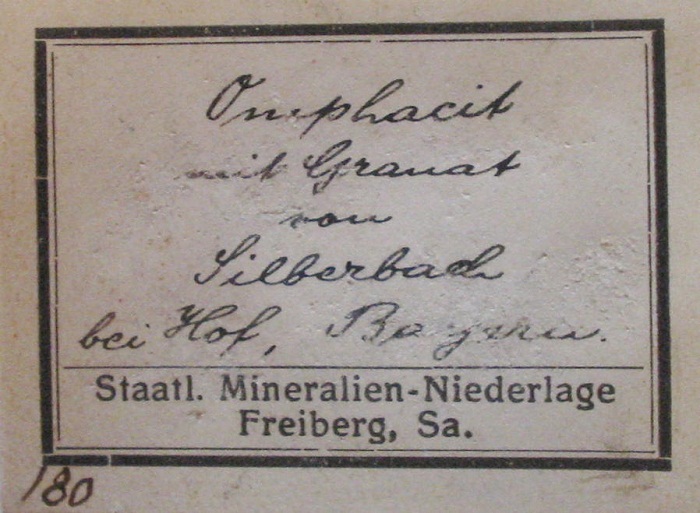 Omphacit
mit Granat
von
Silberbach
bei Hof, Bayern.
Staatl. Mineralien-Niederlage
Freiberg, Sa.
180